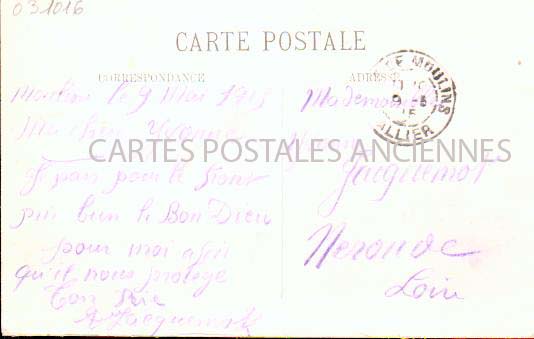 031016
CARTE POSTALE
CORRESPONDANCE
ADRESSE
Moulins le 9 Mai 1915
Yvonne
CARTES POSTALES ANCIENNES
Je pars pour le front
prie bien le Bon Dieu
pour moi afin
qu'il nous protège
Ton
A Jacquemot
MOULINS
ALLIER
Mademoiselle
Jacquemot
Néronde
Loire